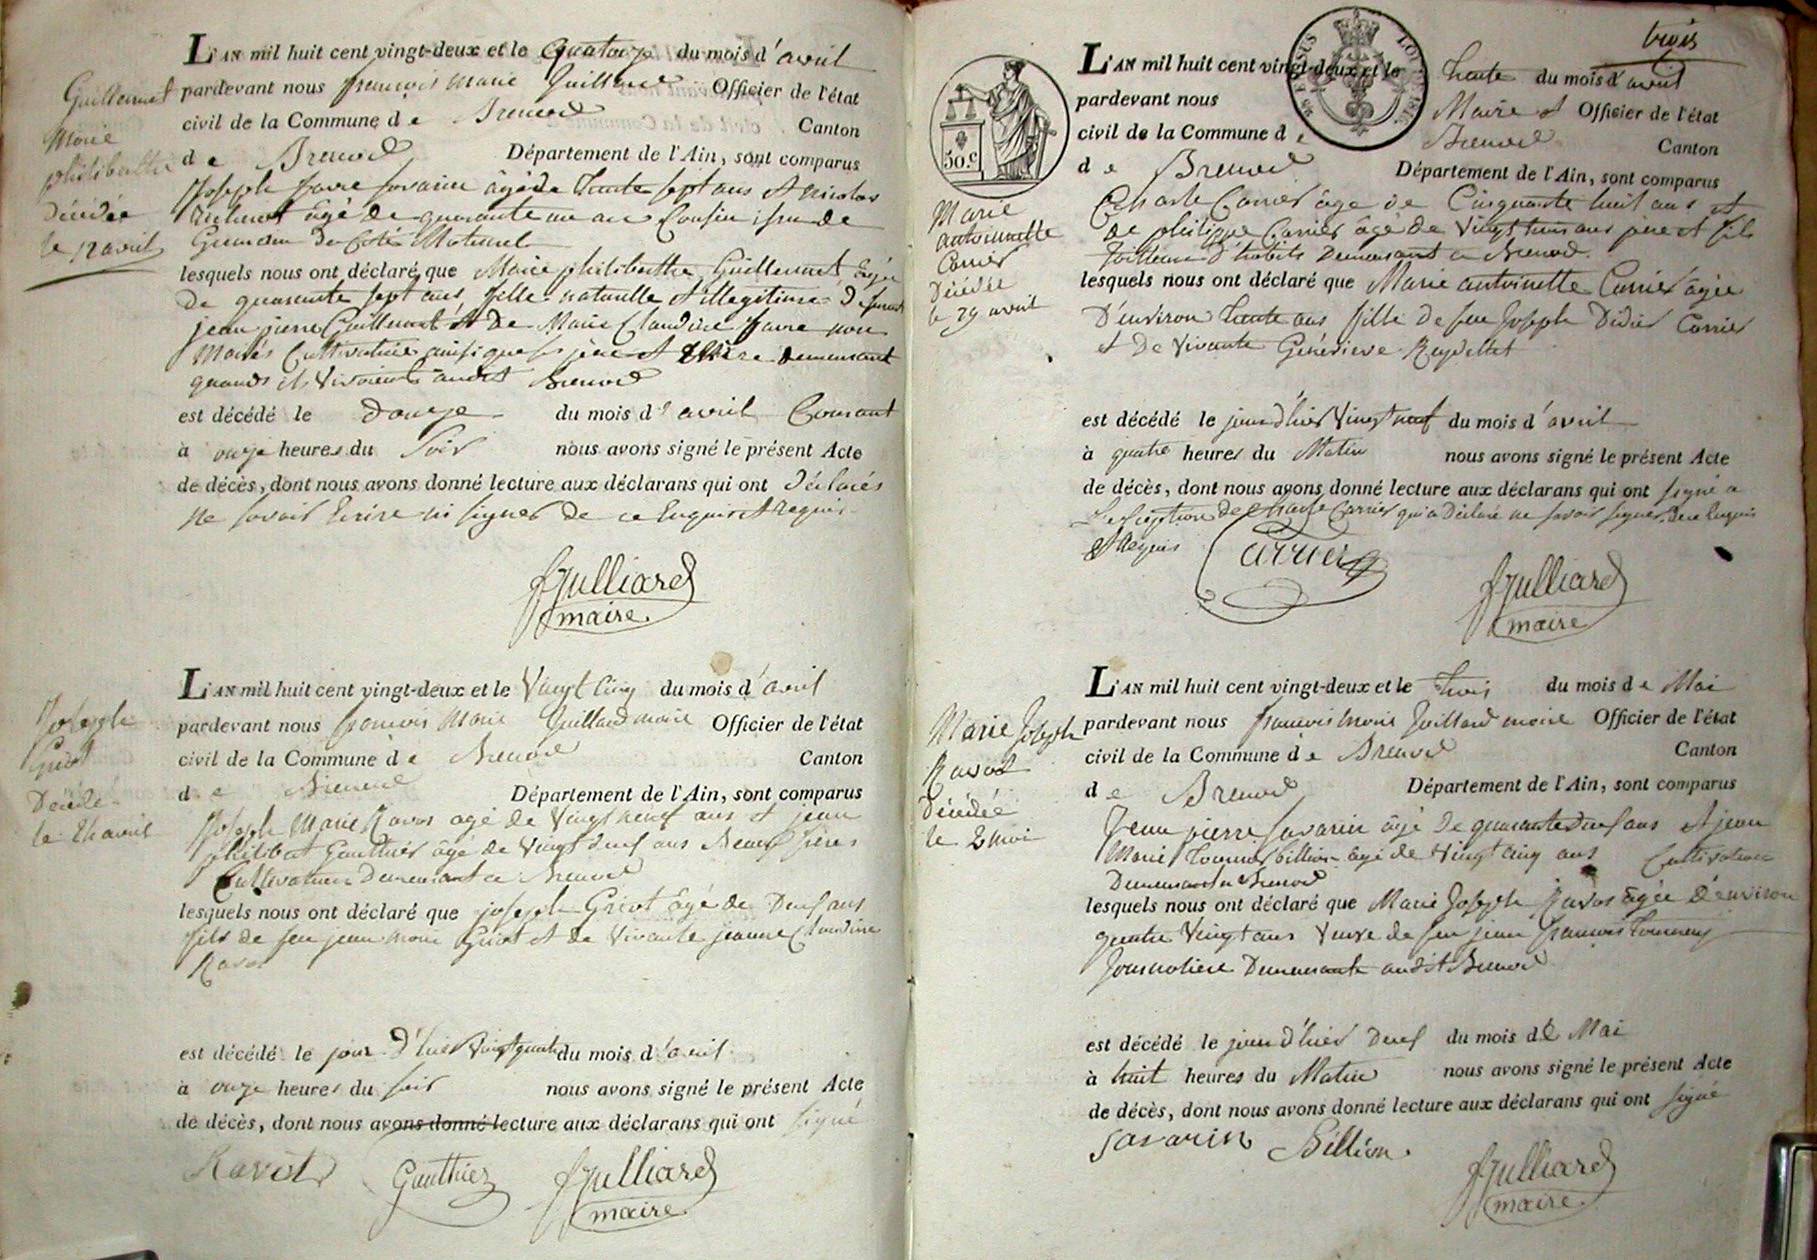 L'AN mil huit cent vingt-deux et le quatorze du mois d'avril
pardevant nous françois Marie Juilliard Officier de l'état
civil de la Commune de Brenod Canton
de Brenod Département de l'Ain, sont comparus
Joseph favre savarin âgé de trente sept ans et nicolas
âgé de quarante un an Cousin issu de
Germain du Coté Maternel
lesquels nous ont déclaré que Marie philiberthe Guillermet âgée
de quarante sept ans, fille naturelle et illegitime de
jean pierre Guillermet et de Marie Claudine favre non
Mariés Cultivatrice ainsi que ses père et Mère demeurant
quands ils vivoient audit Brenod
est décédé le Douze du mois d'avril Courant
à onze heures du Soir nous avons signé le présent Acte
de décès, dont nous avons donné lecture aux déclarans qui ont déclarés
ne savoir Ecrire ni signer de ce Enquis et requis
fJulliard
maire
Guillermet
Marie
philiberthe
Décédée
le 12 avril
L'AN mil huit cent vingt-deux et le Vingt Cinq du mois d'avril
pardevant nous francois Marie Juillard maire Officier de l'état
civil de la Commune de Brenod Canton
de Brenod Département de l'Ain, sont comparus
Joseph Marie Ravos agé de Vingt neuf ans et jean
philibert Gauthier âgé de Vingt deux ans Beaux frères
Cultivateurs Demeurant a Brenod
lesquels nous ont déclaré que joseph Griot âgé de Deux ans
fils de feu jean marie Griot et de Vivante jeanne Claudine
Ravos
est décédé le jour d'hier Vingt quatre du mois d'avril
à onze heures du soir nous avons signé le présent Acte
de décès, dont nous avons donné lecture aux déclarans qui ont signé
Ravot Gauthier fJulliard
maire
Joseph
Griot
Décédé
le 24 avril
trois
L'AN mil huit cent vingt-deux et le trente du mois d'avril
pardevant nous Maire et Officier de l'état
civil de la Commune de Brenod Canton
de Brenod Département de l'Ain, sont comparus
50.c
Charle Carrier âge de Cinquante huit ans et
De philippe Carrier âgé de Vingt trois ans père et fils
Tailleurs d'habits Demeurant a Brenod
lesquels nous ont déclaré que Marie antoinette Carrier âgée
D'environ trente ans fille de feu Joseph Didier Carrier
et de Vivante Geneviève Reydellet
est décédé le jour d'hier Vingt neuf du mois d'avril
à quatre heures du Matin nous avons signé le présent Acte
de décès, dont nous avons donné lecture aux déclarans qui ont signé a
L'exception de Charle Carrier qui a Déclaré ne savoir signer De ce Enquis
et Requis Carrier
fJulliard
maire
Marie
antoinette
Carrier
Décédée
le 29 avril
L'AN mil huit cent vingt-deux et le trois du mois de Mai
pardevant nous francois marie Juillard maire Officier de l'état
civil de la Commune de Brenod Canton
de Brenod Département de l'Ain, sont comparus
Jean pierre savarin âgé de quarante deux ans et jean
Marie billion âgé de Vingt cinq ans Cultivateurs
Demeurant a Brenod
lesquels nous ont déclaré que Marie Joseph Ravos âgée D'environ
quatre Vingt ans Veuve de feu jean françois
Journaliere Demeurante audit Brenod
est décédé le jour d'hier Deux du mois de Mai
à huit heures du Matin nous avons signé le présent Acte
de décès, dont nous avons donné lecture aux déclarans qui ont signé
savarin Billion
fJulliard
maire
Marie Joseph
Ravos
Décédée
le 2 mai